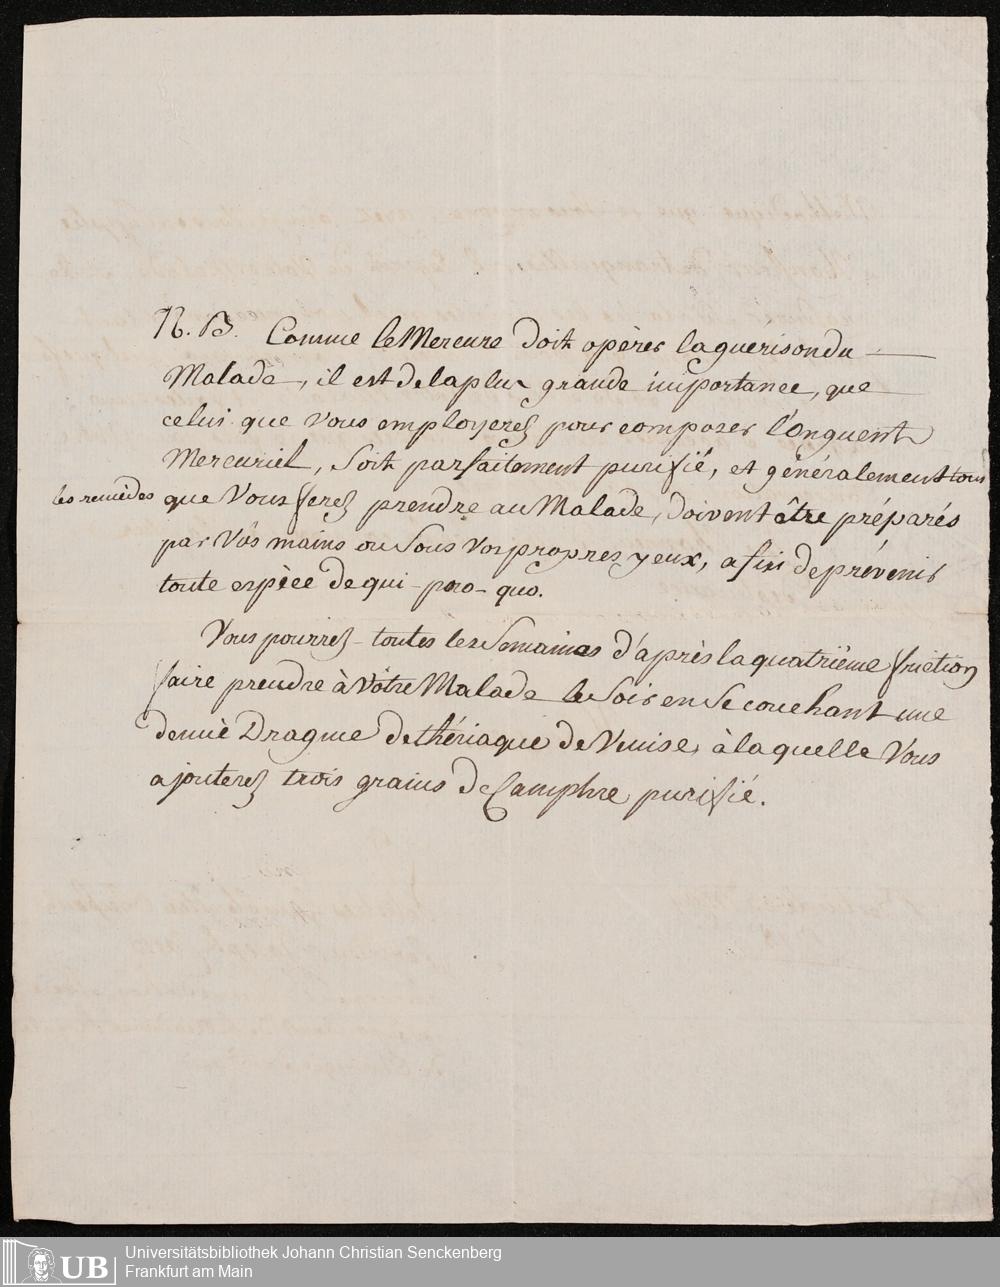 N. B. Comme le Mercure doit opèrer la guérison du
Malade, il est de la plus grande importance, que
celui que Vous employerez pour composer l'onguent
Mercuriel, soit parfaitement purifié, et généralement tous
les remèdes que Vous ferez prendre au Malade, doivent être préparés
par Vôs mains ou sous vos propres yeux, afin de prévenir
toute espèce de qui-pro-quo.
Vous pourrez toutes les semaines d'après la quatrième friction
faire prendre à Vôtre Malade le soir en se couchant une
demie Dragme de thériaque de Venise, à la quelle Vous
ajouterez trois grains de Camphre purifié.
UB
Universitätsbibliothek Johann Christian Senckenberg
Frankfurt am Main